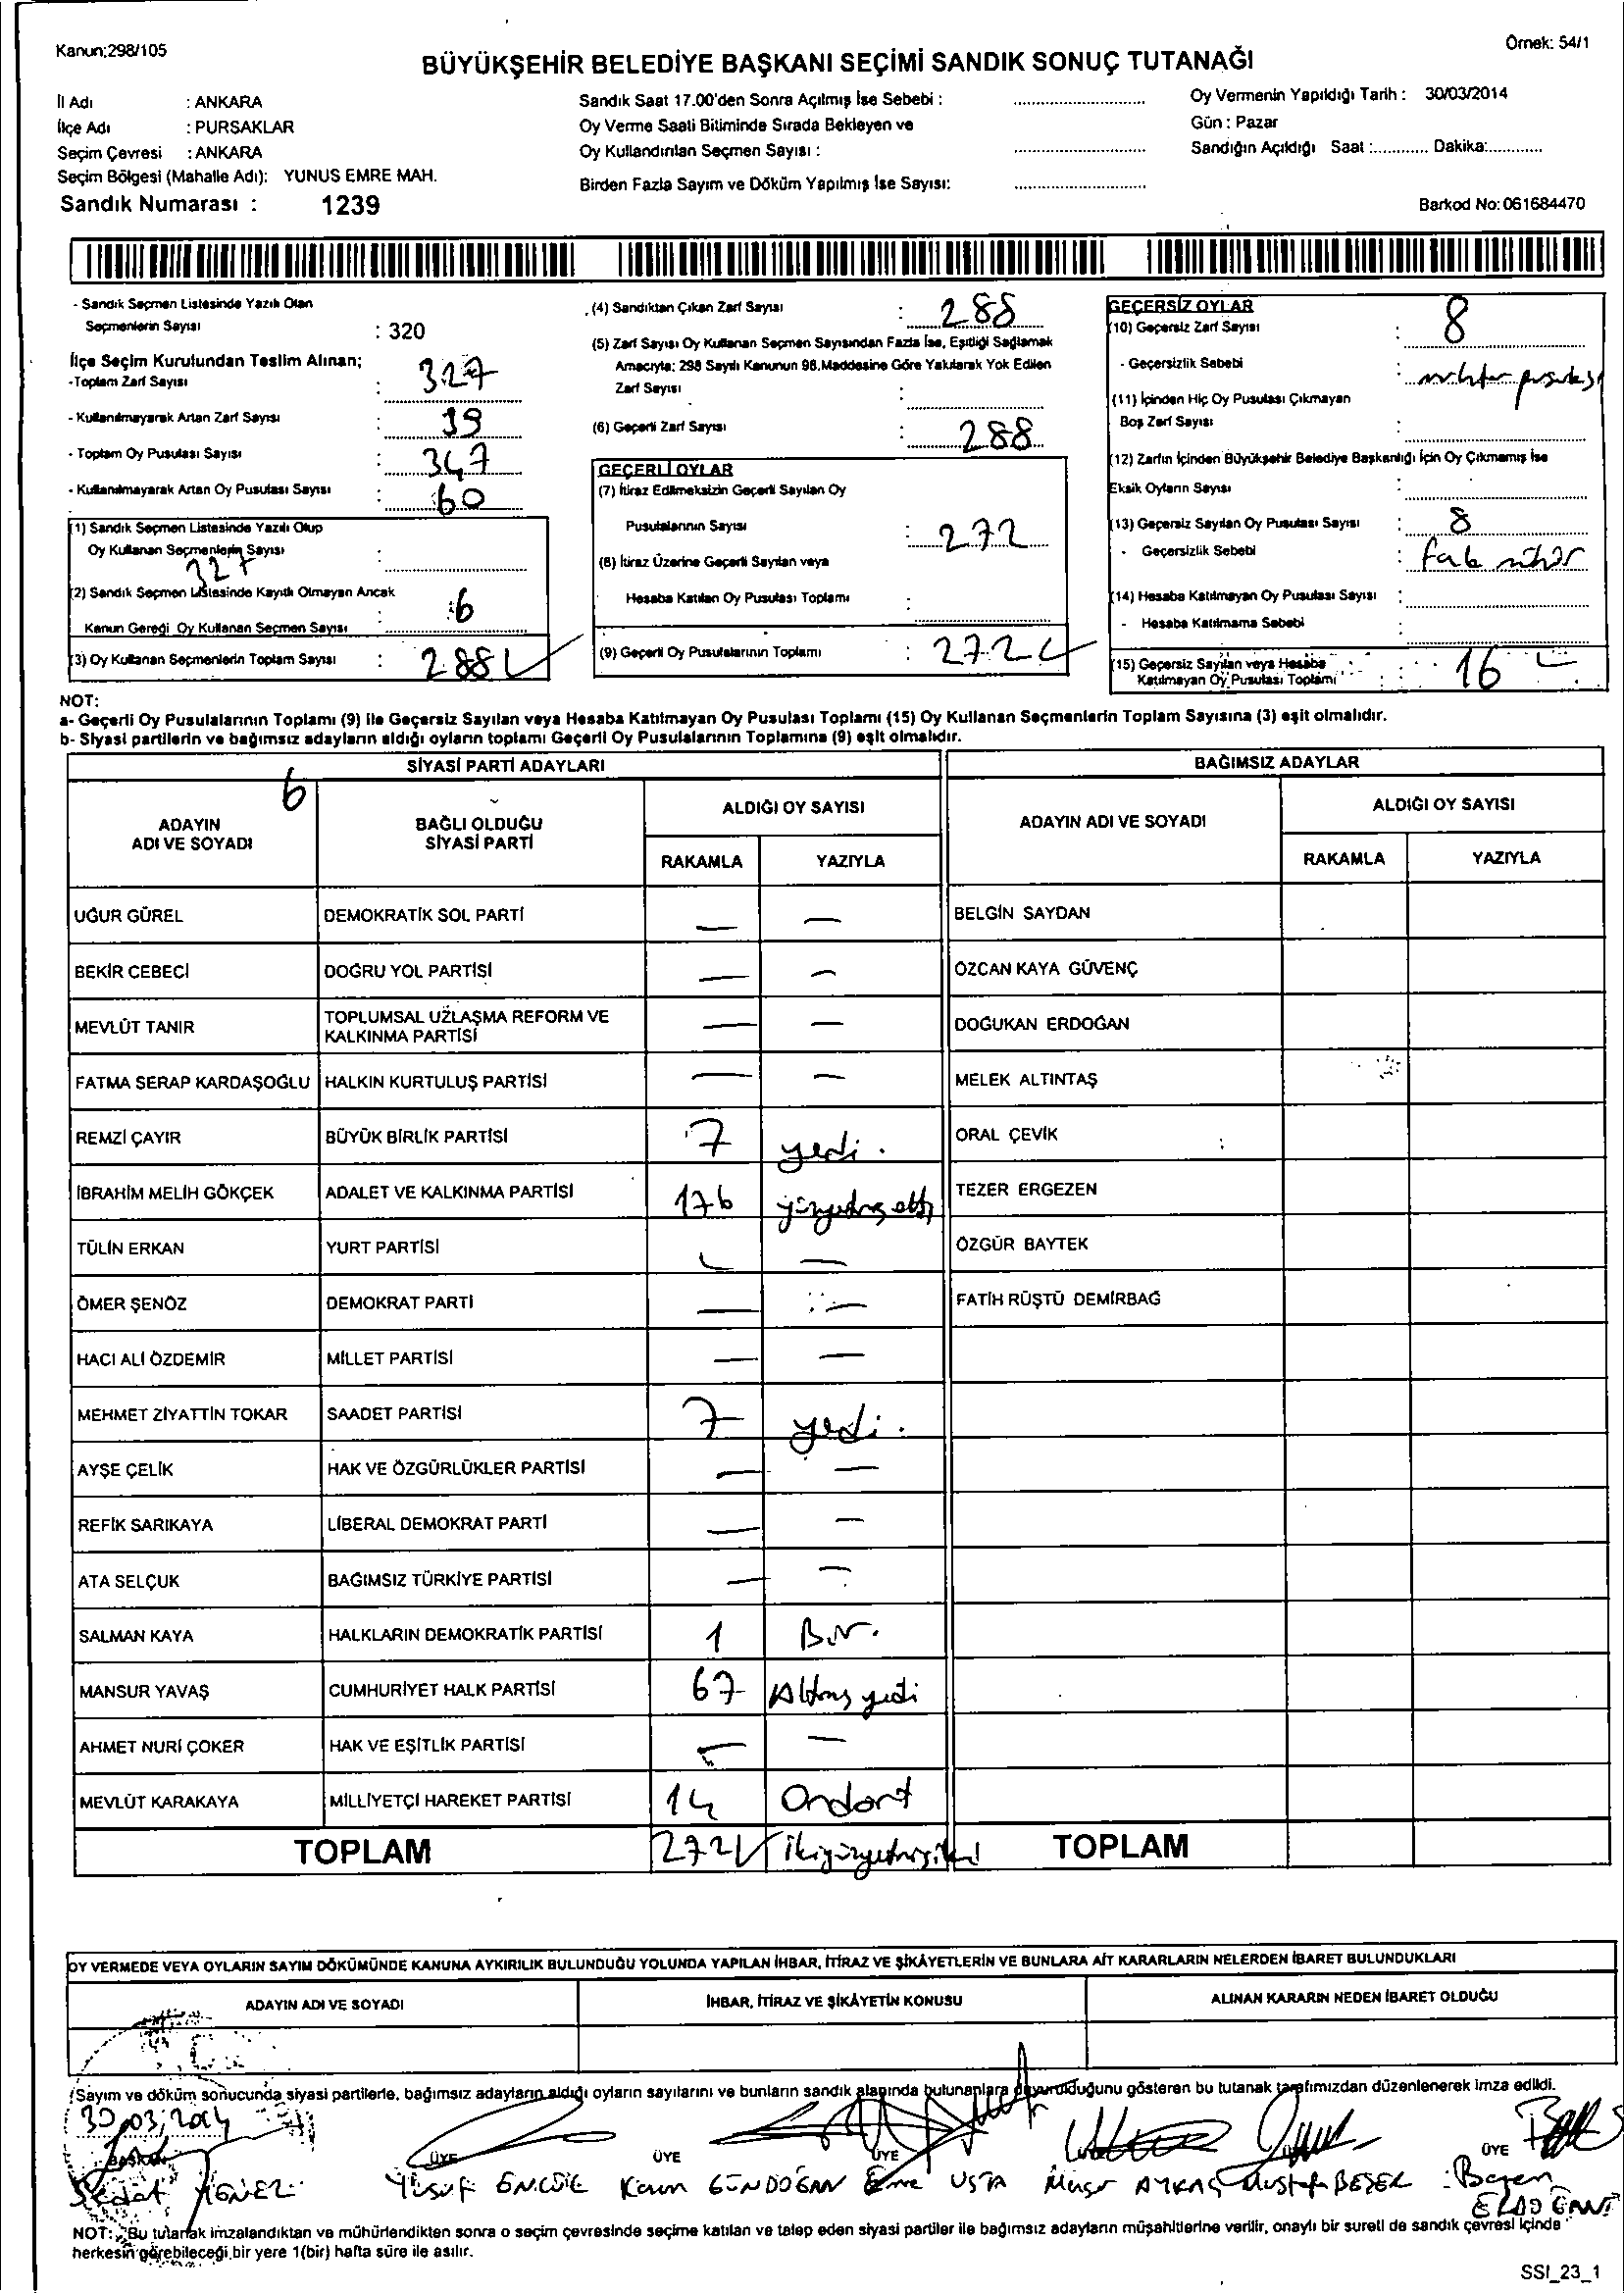 Kanun:298/105
Örnek: 54/1
BÜYÜKŞEHİR BELEDİYE BAŞKANI SEÇİMİ SANDIK SONUÇ TUTANAĞI
İl Adı : ANKARA
İlçe Adı : PURSAKLAR
Seçim Çevresi : ANKARA
Seçim Bölgesi (Mahalle Adı): YUNUS EMRE MAH.
Sandık Numarası : 1239
Sandık Saat 17.00'den Sonra Açılmış İse Sebebi :
Oy Verme Saati Bitiminde Sırada Bekleyen ve
Oy Kullandırılan Seçmen Sayısı :
Birden Fazla Sayım ve Döküm Yapılmış İse Sayısı:
Oy Vermenin Yapıldığı Tarih : 30/03/2014
Gün : Pazar
Sandığın Açıldığı Saat :............ Dakika:............
Barkod No: 061684470
- Sandık Seçmen Listesinde Yazılı Olan
Seçmenlerin Sayısı : 320
İlçe Seçim Kurulundan Teslim Alınan;
-Toplam Zarf Sayısı : 327
- Kullanılmayarak Artan Zarf Sayısı : 39
- Toplam Oy Pusulası Sayısı : 347
- Kullanılmayarak Artan Oy Pusulası Sayısı : 60
(1) Sandık Seçmen Listesinde Yazılı Olup
Oy Kullanan Seçmenlerin Sayısı :
327
(2) Sandık Seçmen Listesinde Kayıtlı Olmayan Ancak
Kanun Gereği Oy Kullanan Seçmen Sayısı : 6
(3) Oy Kullanan Seçmenlerin Toplam Sayısı : 288
(4) Sandıktan Çıkan Zarf Sayısı : 288
(5) Zarf Sayısı Oy Kullanan Seçmen Sayısından Fazla İse, Eşitliği Sağlamak
Amacıyla: 298 Sayılı Kanunun 98.Maddesine Göre Yakılarak Yok Edilen
Zarf Sayısı :
(6) Geçerli Zarf Sayısı : 288
GEÇERLİ OYLAR
(7) İtiraz Edilmeksizin Geçerli Sayılan Oy
Pusulalarının Sayısı : 272
(8) İtiraz Üzerine Geçerli Sayılan veya
Hesaba Katılan Oy Pusulası Toplamı :
(9) Geçerli Oy Pusulalarının Toplamı : 272
GEÇERSİZ OYLAR
(10) Geçersiz Zarf Sayısı : 8
- Geçersizlik Sebebi :
(11) İçinden Hiç Oy Pusulası Çıkmayan
Boş Zarf Sayısı :
(12) Zarfın İçinden Büyükşehir Belediye Başkanlığı İçin Oy Çıkmamış İse
Eksik Oyların Sayısı :
(13) Geçersiz Sayılan Oy Pusulası Sayısı : 8
- Geçersizlik Sebebi :
(14) Hesaba Katılmayan Oy Pusulası Sayısı :
- Hesaba Katılmama Sebebi :
(15) Geçersiz Sayılan veya Hesaba
Katılmayan Oy Pusulası Toplamı : 16
NOT:
a- Geçerli Oy Pusulalarının Toplamı (9) ile Geçersiz Sayılan veya Hesaba Katılmayan Oy Pusulası Toplamı (15) Oy Kullanan Seçmenlerin Toplam Sayısına (3) eşit olmalıdır.
b- Siyasi partilerin ve bağımsız adayların aldığı oyların toplamı Geçerli Oy Pusulalarının Toplamına (9) eşit olmalıdır.
SİYASİ PARTİ ADAYLARI
BAĞIMSIZ ADAYLAR
6
ADAYIN
ADI VE SOYADI
BAĞLI OLDUĞU
SİYASİ PARTİ
ALDIĞI OY SAYISI
RAKAMLA YAZIYLA
ADAYIN ADI VE SOYADI
ALDIĞI OY SAYISI
RAKAMLA YAZIYLA
UĞUR GÜREL DEMOKRATİK SOL PARTİ — — BELGİN SAYDAN
BEKİR CEBECİ DOĞRU YOL PARTİSİ — — ÖZCAN KAYA GÜVENÇ
MEVLÜT TANIR TOPLUMSAL UZLAŞMA REFORM VE
KALKINMA PARTİSİ — — DOĞUKAN ERDOĞAN
FATMA SERAP KARDAŞOĞLU HALKIN KURTULUŞ PARTİSİ — — MELEK ALTINTAŞ
REMZİ ÇAYIR BÜYÜK BİRLİK PARTİSİ 7 yedi. ORAL ÇEVİK
İBRAHİM MELİH GÖKÇEK ADALET VE KALKINMA PARTİSİ 176 yüzyetmiş altı TEZER ERGEZEN
TÜLİN ERKAN YURT PARTİSİ — — ÖZGÜR BAYTEK
ÖMER ŞENÖZ DEMOKRAT PARTİ — — FATİH RÜŞTÜ DEMİRBAĞ
HACI ALİ ÖZDEMİR MİLLET PARTİSİ — —
MEHMET ZİYATTİN TOKAR SAADET PARTİSİ 7 yedi.
AYŞE ÇELİK HAK VE ÖZGÜRLÜKLER PARTİSİ — —
REFİK SARIKAYA LİBERAL DEMOKRAT PARTİ — —
ATA SELÇUK BAĞIMSIZ TÜRKİYE PARTİSİ — —
SALMAN KAYA HALKLARIN DEMOKRATİK PARTİSİ 1 Bir.
MANSUR YAVAŞ CUMHURİYET HALK PARTİSİ 67 Altmış yedi
AHMET NURİ ÇOKER HAK VE EŞİTLİK PARTİSİ — —
MEVLÜT KARAKAYA MİLLİYETÇİ HAREKET PARTİSİ 14 Ondört
TOPLAM 272 ikiyüzyetmişiki TOPLAM
OY VERMEDE VEYA OYLARIN SAYIM DÖKÜMÜNDE KANUNA AYKIRILIK BULUNDUĞU YOLUNDA YAPILAN İHBAR, İTİRAZ VE ŞİKÂYETLERİN VE BUNLARA AİT KARARLARIN NELERDEN İBARET BULUNDUKLARI
ADAYIN ADI VE SOYADI İHBAR, İTİRAZ VE ŞİKÂYETİN KONUSU ALINAN KARARIN NEDEN İBARET OLDUĞU
Sayım ve döküm sonucunda siyasi partilerle, bağımsız adayların aldığı oyların sayılarını ve bunların sandık alanında bulunanlara duyurulduğunu gösteren bu tutanak tarafımızdan düzenlenerek imza edildi.
30.03.2014
BAŞKAN ÜYE ÜYE ÜYE ÜYE
Sedat Yusuf Kerim GÜNDOĞAN Emre USTA Mustafa BEŞER
ERDOĞAN
NOT: Bu tutanak imzalandıktan ve mühürlendikten sonra o seçim çevresinde seçime katılan ve talep eden siyasi partiler ile bağımsız adayların müşahitlerine verilir, onaylı bir sureti de sandık çevresi içinde
herkesin görebileceği bir yere 1(bir) hafta süre ile asılır.
SSI_23_1